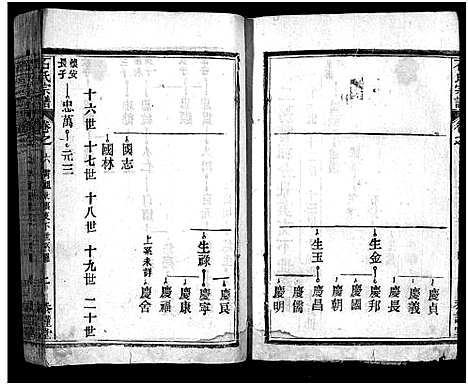 慶貞
慶義
慶長
生金
慶邦
慶國
慶朝
生玉
慶昌
慶儒
慶明
慶良
生祿
慶寧
慶康
慶福
慶舍
上系未詳
十六世 十七世 十八世 十九世 二十世
國志
國林
懷安長子
忠萬
元三
石氏宗譜
卷之